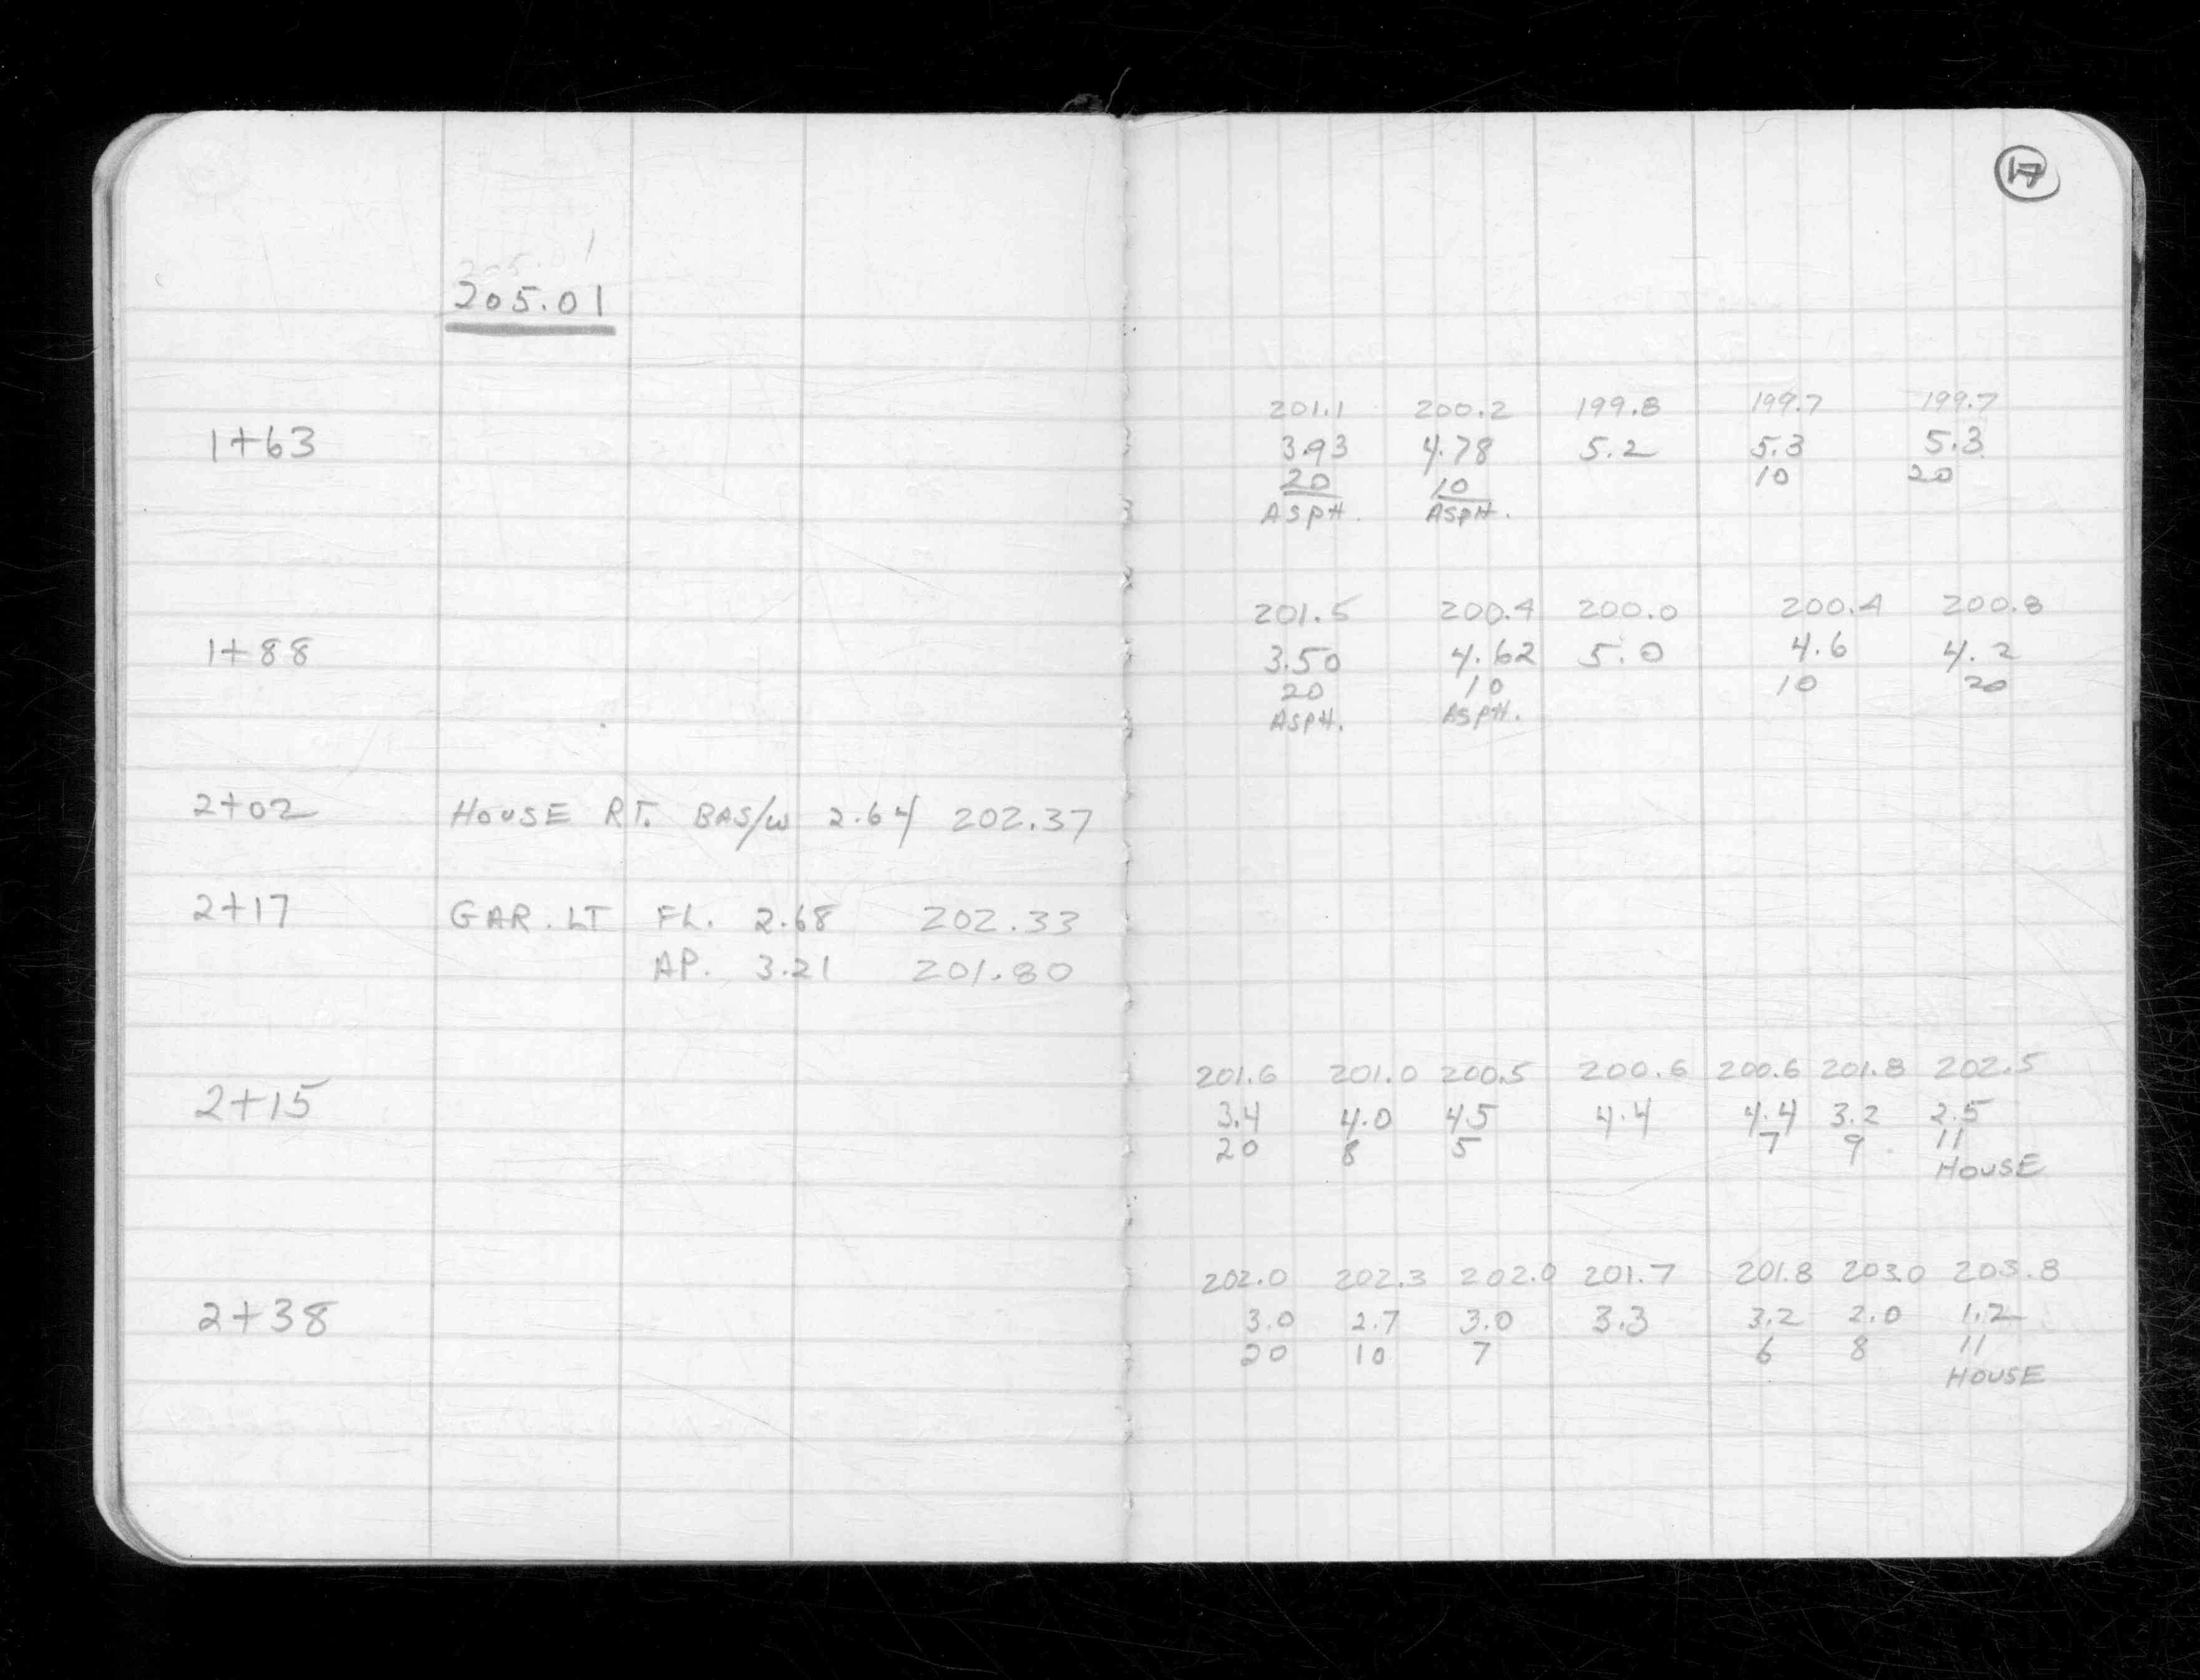 17
205.01
205.01
201.1 200.2 199.8 199.7 199.7
1+63 3.93 4.78 5.2 5.3 5.3
20 10 10 20
ASPH. ASPH.
201.5 200.4 200.0 200.4 200.8
1+88 3.50 4.62 5.0 4.6 4.2
20 10 10 20
ASPH. ASPH.
2+02 HOUSE RT. BAS/W 2.64 202.37
2+17 GAR. LT FL. 2.68 202.33
AP. 3.21 201.80
201.6 201.0 200.5 200.6 200.6 201.8 202.5
2+15 3.4 4.0 4.5 4.4 4.4 3.2 2.5
20 8 5 7 9 11
HOUSE
202.0 202.3 202.0 201.7 201.8 203.0 203.8
2+38 3.0 2.7 3.0 3.3 3.2 2.0 1.2
20 10 7 6 8 11
HOUSE